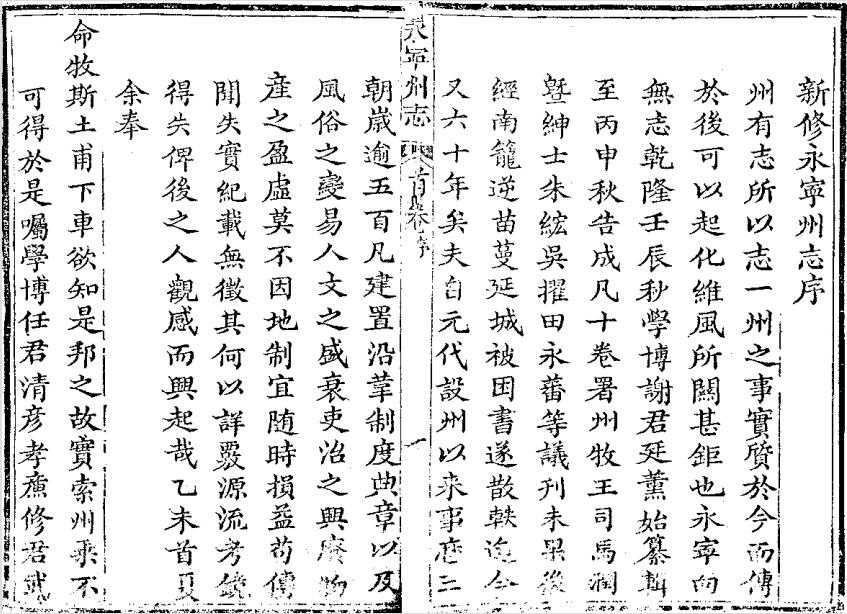 新修永寧州志序
州有志所以志一州之事實質於今而傳
於後可以起化維風所關甚鉅也永寧向
無志乾隆壬辰秋學博謝君廷薰始纂輯
至丙申秋告成凡十卷署州牧王司馬潤
暨紳士朱紘吳擢田永蕃等議刊未果後
經南籠逆苗蔓延城被困書遂散軼迄今
又六十年矣夫自元代設州以來事歷三
永寧州志
首卷序
一
朝歲逾五百凡建置沿革制度典章以及
風俗之變易人文之盛衰吏治之興廢物
產之盈虛莫不因地制宜随時損益苟傳
聞失實紀載無徵其何以詳覈源流考鏡
得失俾後之人觀感而興起哉乙未首夏
余奉
命牧斯土甫下車欲知是邦之故實索州乘不
可得於是囑學博任君清彦孝廉修君武